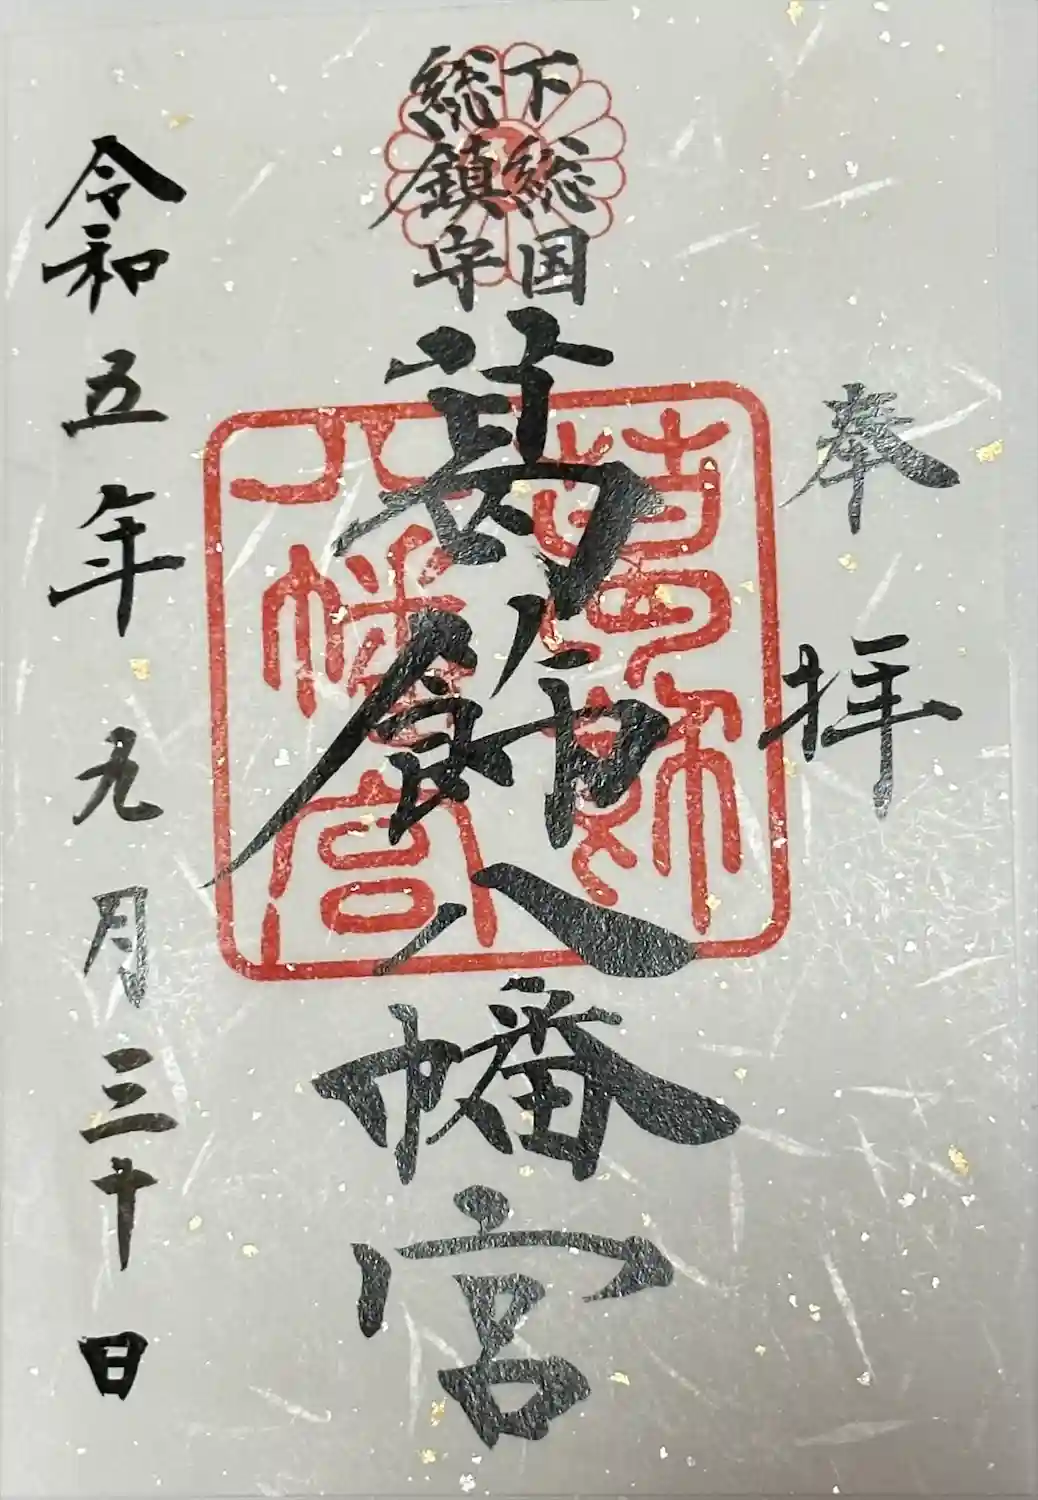 奉拝
下総国
総鎮守
葛飾八幡宮
葛飾
八幡宮
令和五年九月三十日